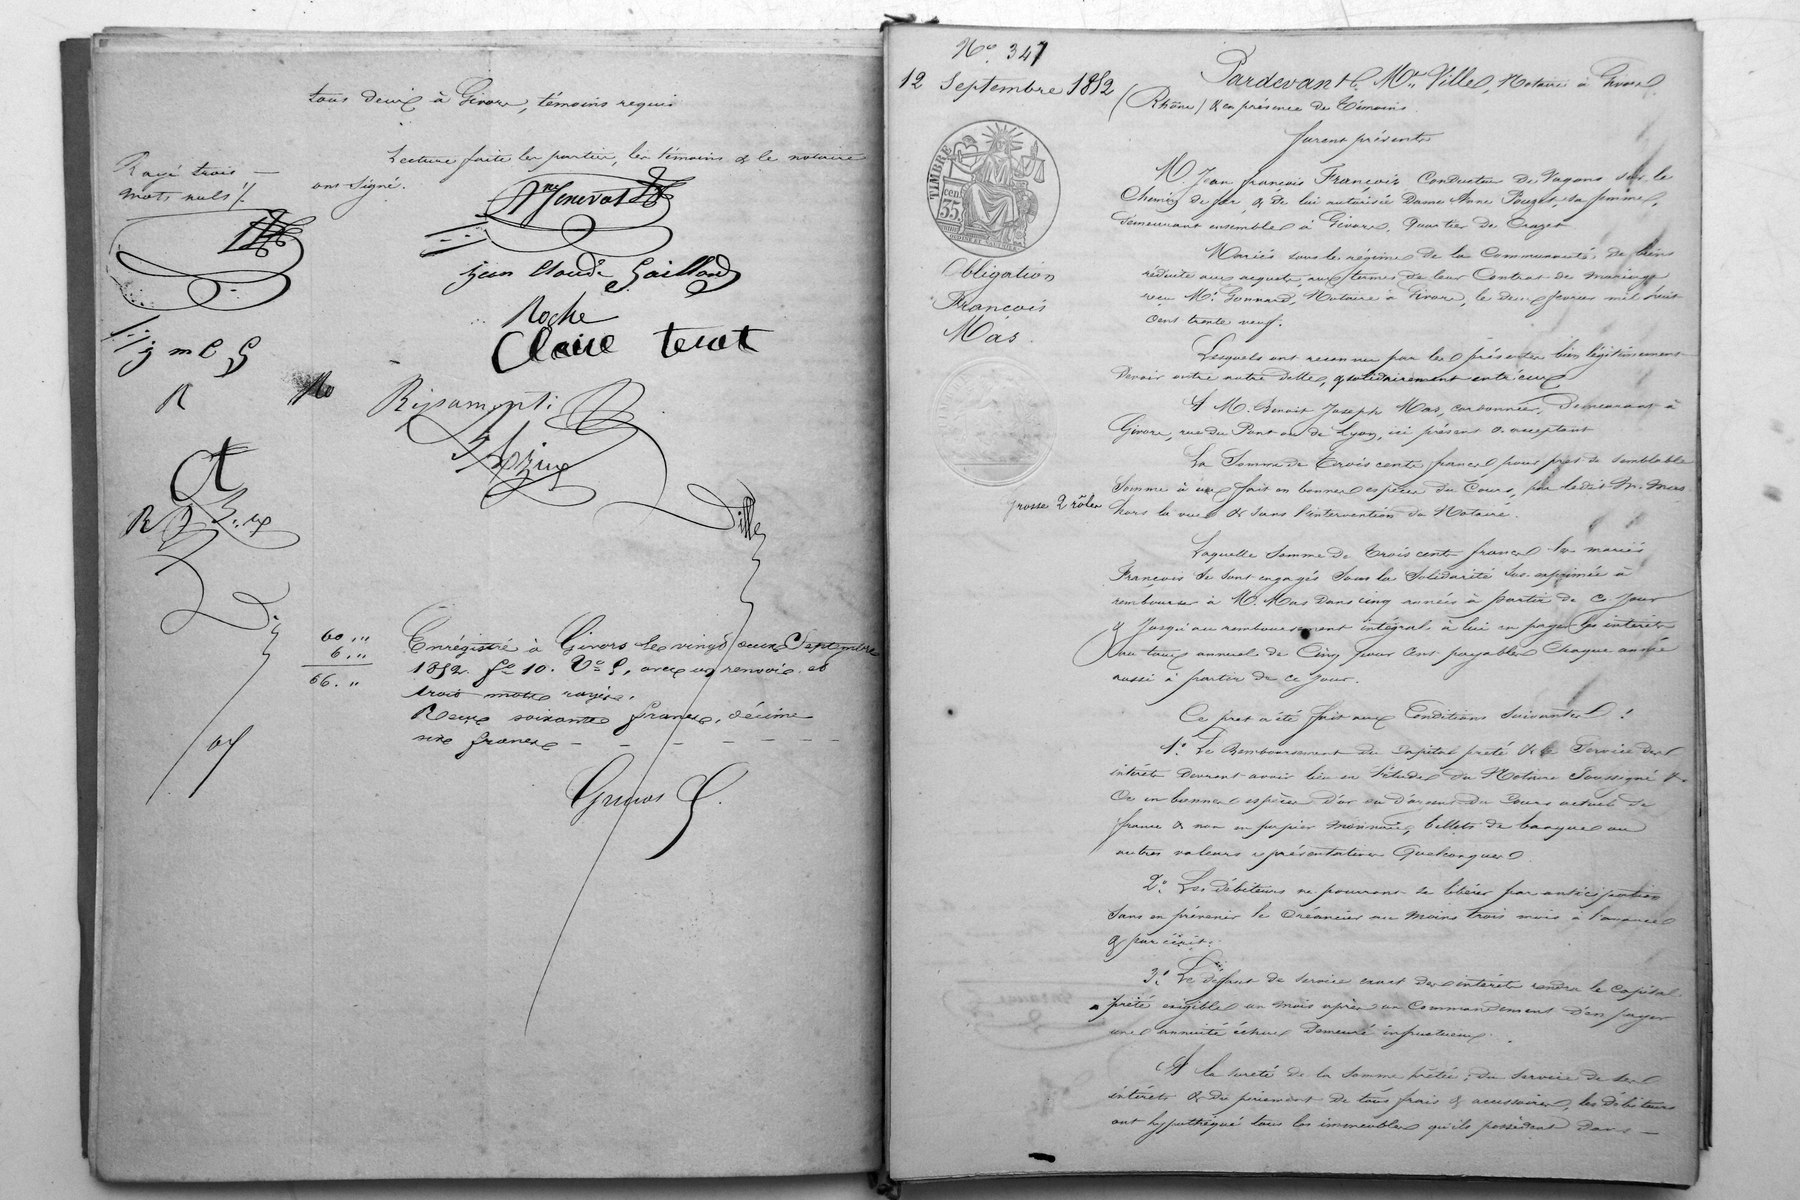 tous deux à Givors, témoins requis
Lecture faite les parties, les témoins & le notaire
ont signé.
Rayé trois
mots nuls ./.
Jean Claude Gaillard
Roche
Claire terat
j m C G
R
Ripamonti
Ville
60 . "
6 . "
66 . "
Enrégistré à Givors le vingt deux Septembre
1852. fo 10. Vo , avec un renvoi et
trois mots rayés.
Reçu soixante francs, décime
six francs
No. 347
12 Septembre 1852
TIMBRE
35 cen
Obligation
François
Mas.
grosse 2 rôles
Pardevant Me Ville, Notaire à Givors
(Rhône) & en présence de Témoins
furent présents
M Jean François François Conducteur de Vagons sur le
Chemin de fer, & de lui autorisée Dame Anne Pouzet, sa femme,
demeurant ensemble à Givors, quartier de
Mariés sous le régime de la Communauté de biens
réduite aux acquets, aux termes de leur Contrat de mariage
reçu Me Gonnard, Notaire à Givors, le deux février mil huit
cent trente neuf.
Lesquels ont reconnu par les présentes bien légitimement
Devoir entre autre dette, & solidairement entr'eux
A M. Benoit Joseph Mas, cordonnier, Demeurant à
Givors, rue du Pont ou de Lyon, ici présent & acceptant
La Somme de Trois cents francs pour prêt de semblable
Somme à eux fait en bonnes espèces du Cours, par ledit M. Mas
hors la vue & sans l'intervention du Notaire.
Laquelle Somme de Trois cents francs les mariés
François se sont engagés sous la Solidarité sus exprimée à
rembourser à M. Mas dans cinq années à partir de ce Jour
& Jusqu'au remboursement intégral à lui en payer les intérêts
au taux annuel de Cinq pour Cent payables Chaque année
aussi à partir de ce Jour.
Ce prêt a été fait aux Conditions Suivantes :
1o. Le Remboursement du Capital prêté & le Service des
intérêts devront avoir lieu en l'étude du Notaire Soussigné &
Ce en bonnes espèces d'or ou d'argent du Cours actuel de
france & non en papier monnaie, billets de banque ou
autres valeurs représentatives Quelconques.
2o. Les débiteurs ne pourront se libérer par anticipation
Sans en prévenir le Créancier au moins trois mois à l'avance
& par écrit.
3o. Le défaut de service exact des intérêts rendra le capital
prêté exigible un mois après un Commandement d'en payer
une annuité échue Demeuré infructueux.
A la sureté de la Somme prêtée, du service de ses
intérêts & du paiement de tous frais & accessoires, les débiteurs
ont hypothéqué tous les immeubles qu'ils possèdent dans